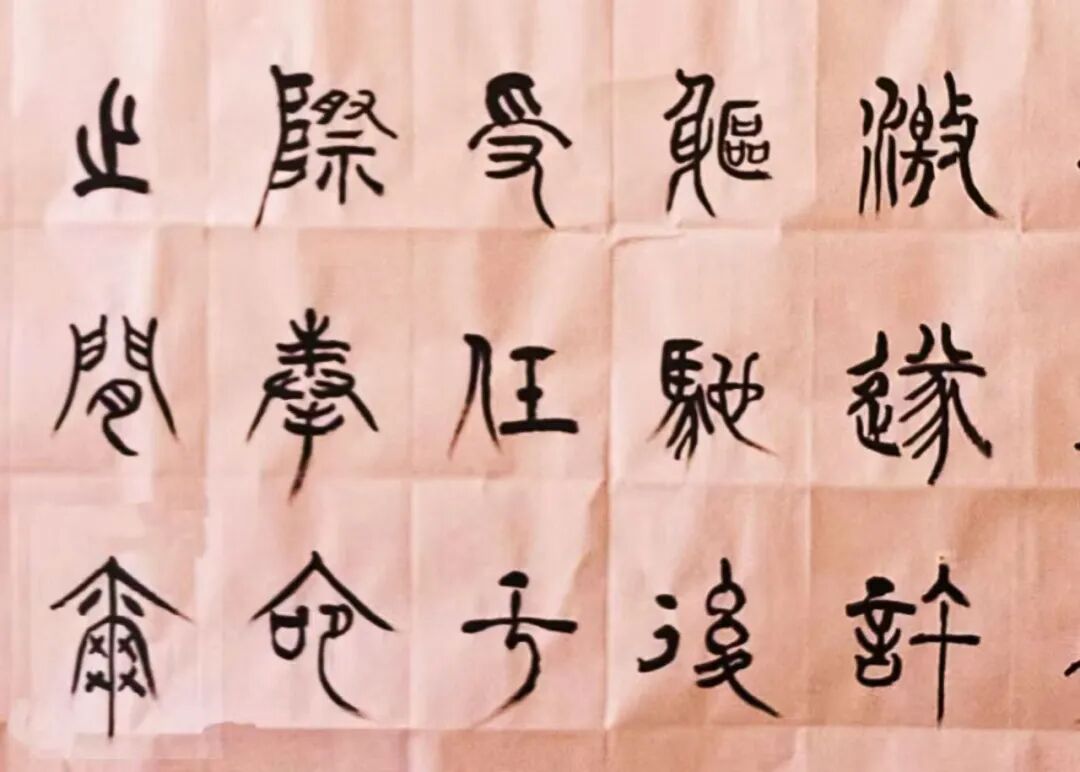 激遂許
驅馳後
受任于
際奉命
之間爾